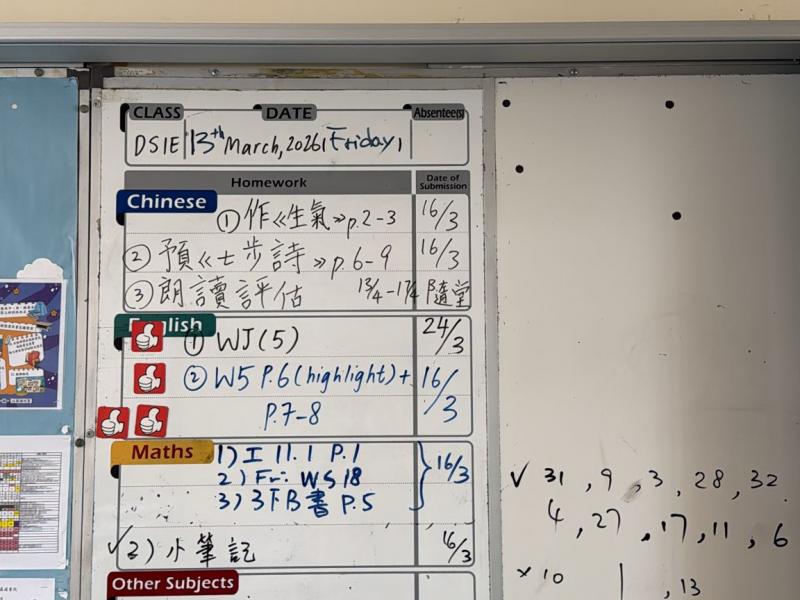 CLASS DATE Absentee(s)
DS1E 13th March, 2026, Friday,
Homework Date of Submission
Chinese
① 作《生氣》p.2-3 16/3
② 預《七步詩》p.6-9 16/3
③ 朗讀評估 13/4-17/4 隨堂
English
① WJ(5) 24/3
② W5 P.6 (highlight) + 16/3
P.7-8
Maths
1) 工 11.1 P.1 16/3
2) Fri: WS 18
3) 3下B書 P.5
✓2) 小筆記 16/3
Other Subjects
✓ 31, 9, 3, 28, 32
4, 27, 17, 11, 6
× 10 1, 13